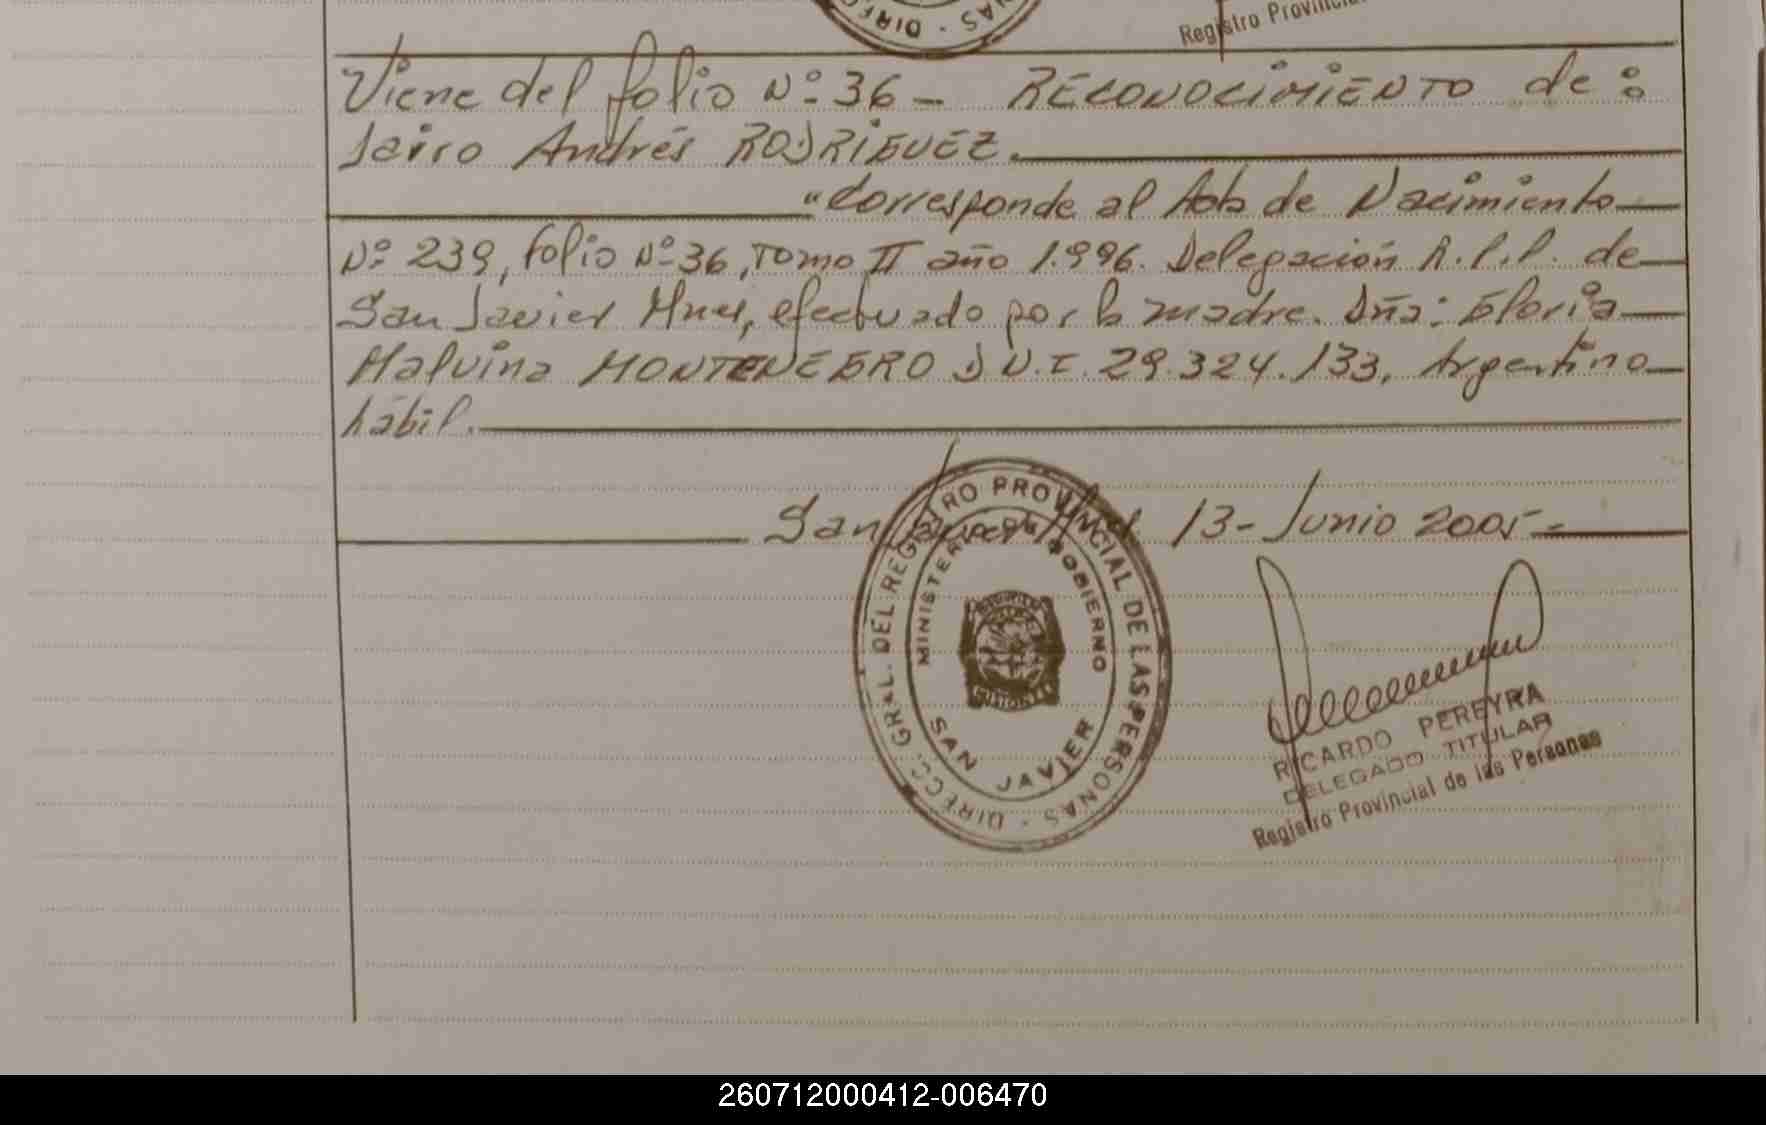 DIRECC NAS -
Registro Provincial
Viene del folio Nº 36 - RECONOCIMIENTO de :
Jairo Andrés RODRIGUEZ.
"Corresponde al Acta de Nacimiento
Nº 239, folio Nº 36, Tomo II año 1.996. Delegación R.P.P. de
San Javier Mnes, efectuado por la madre. Dña: Gloria
Malvina MONTENEGRO D N.I. 29.324.133, Argentina
hábil.
San Javier Mnes, 13 - Junio 2005 -
DIRECC. GRAL. DEL REGISTRO PROVINCIAL DE LAS PERSONAS -
MINISTERIO DE GOBIERNO
MISIONES
SAN JAVIER
RICARDO PEREYRA
DELEGADO TITULAR
Registro Provincial de las Personas
260712000412-006470